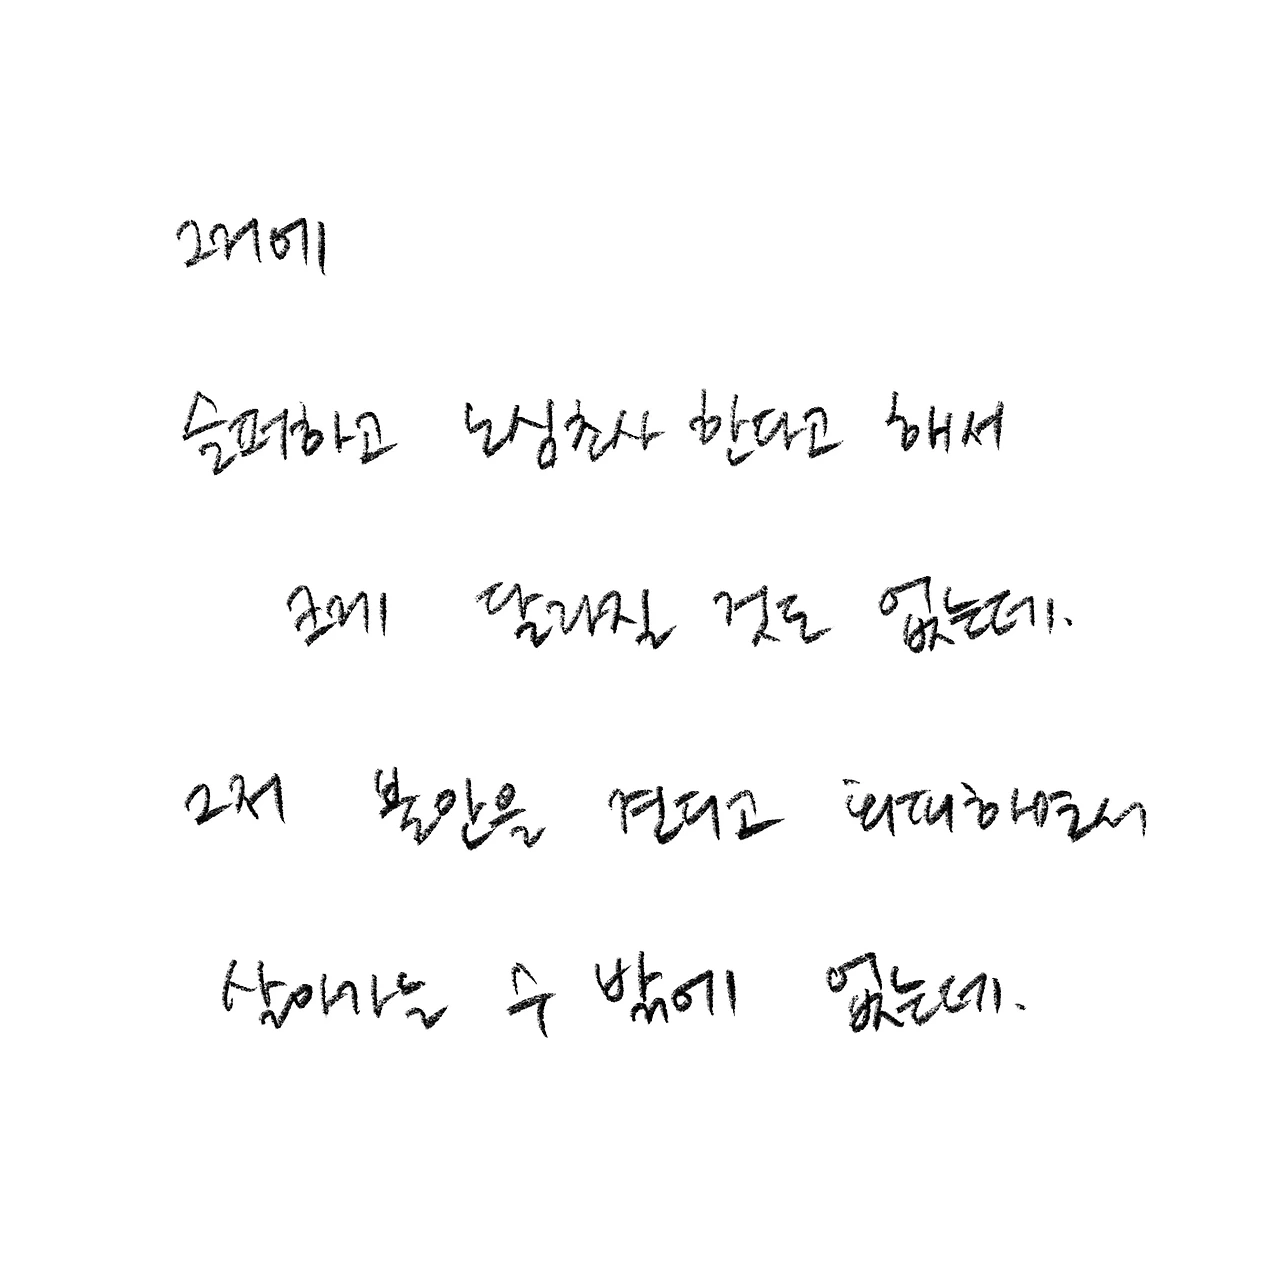 그거에
슬퍼하고 노심초사 한다고 해서
크게 달라질 것도 없는데.
그저 불안을 견디고 회피하면서
살아가는 수 밖에 없는데.